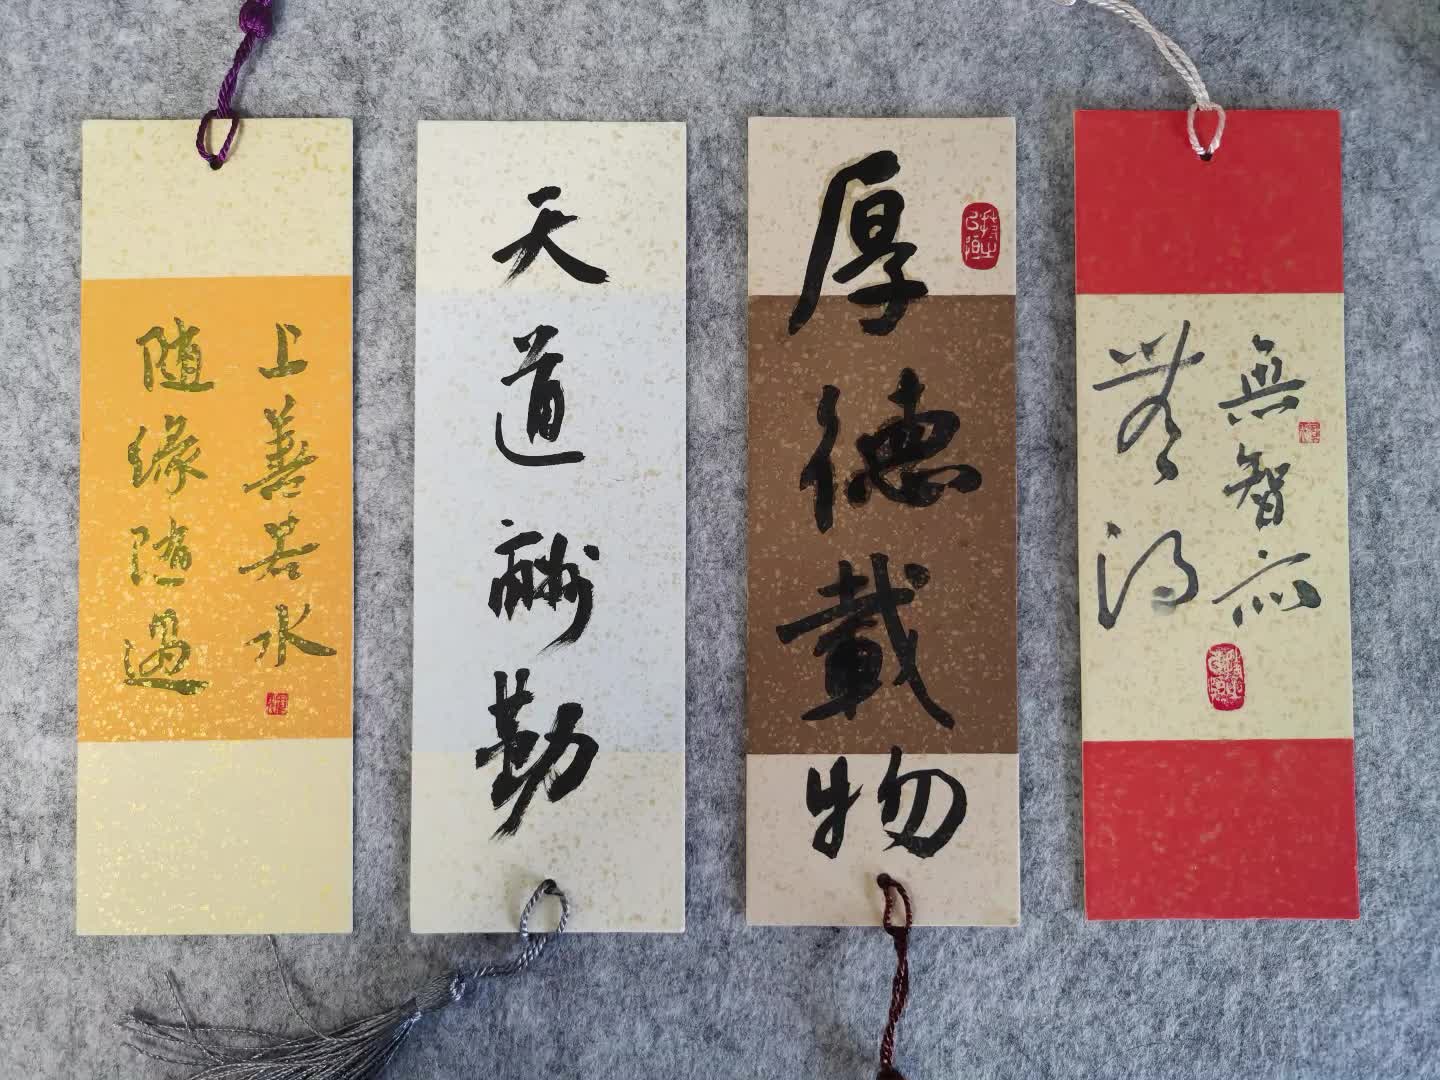 上善若水
随缘随遇
天道酬勤
厚德載物
無智亦
無得